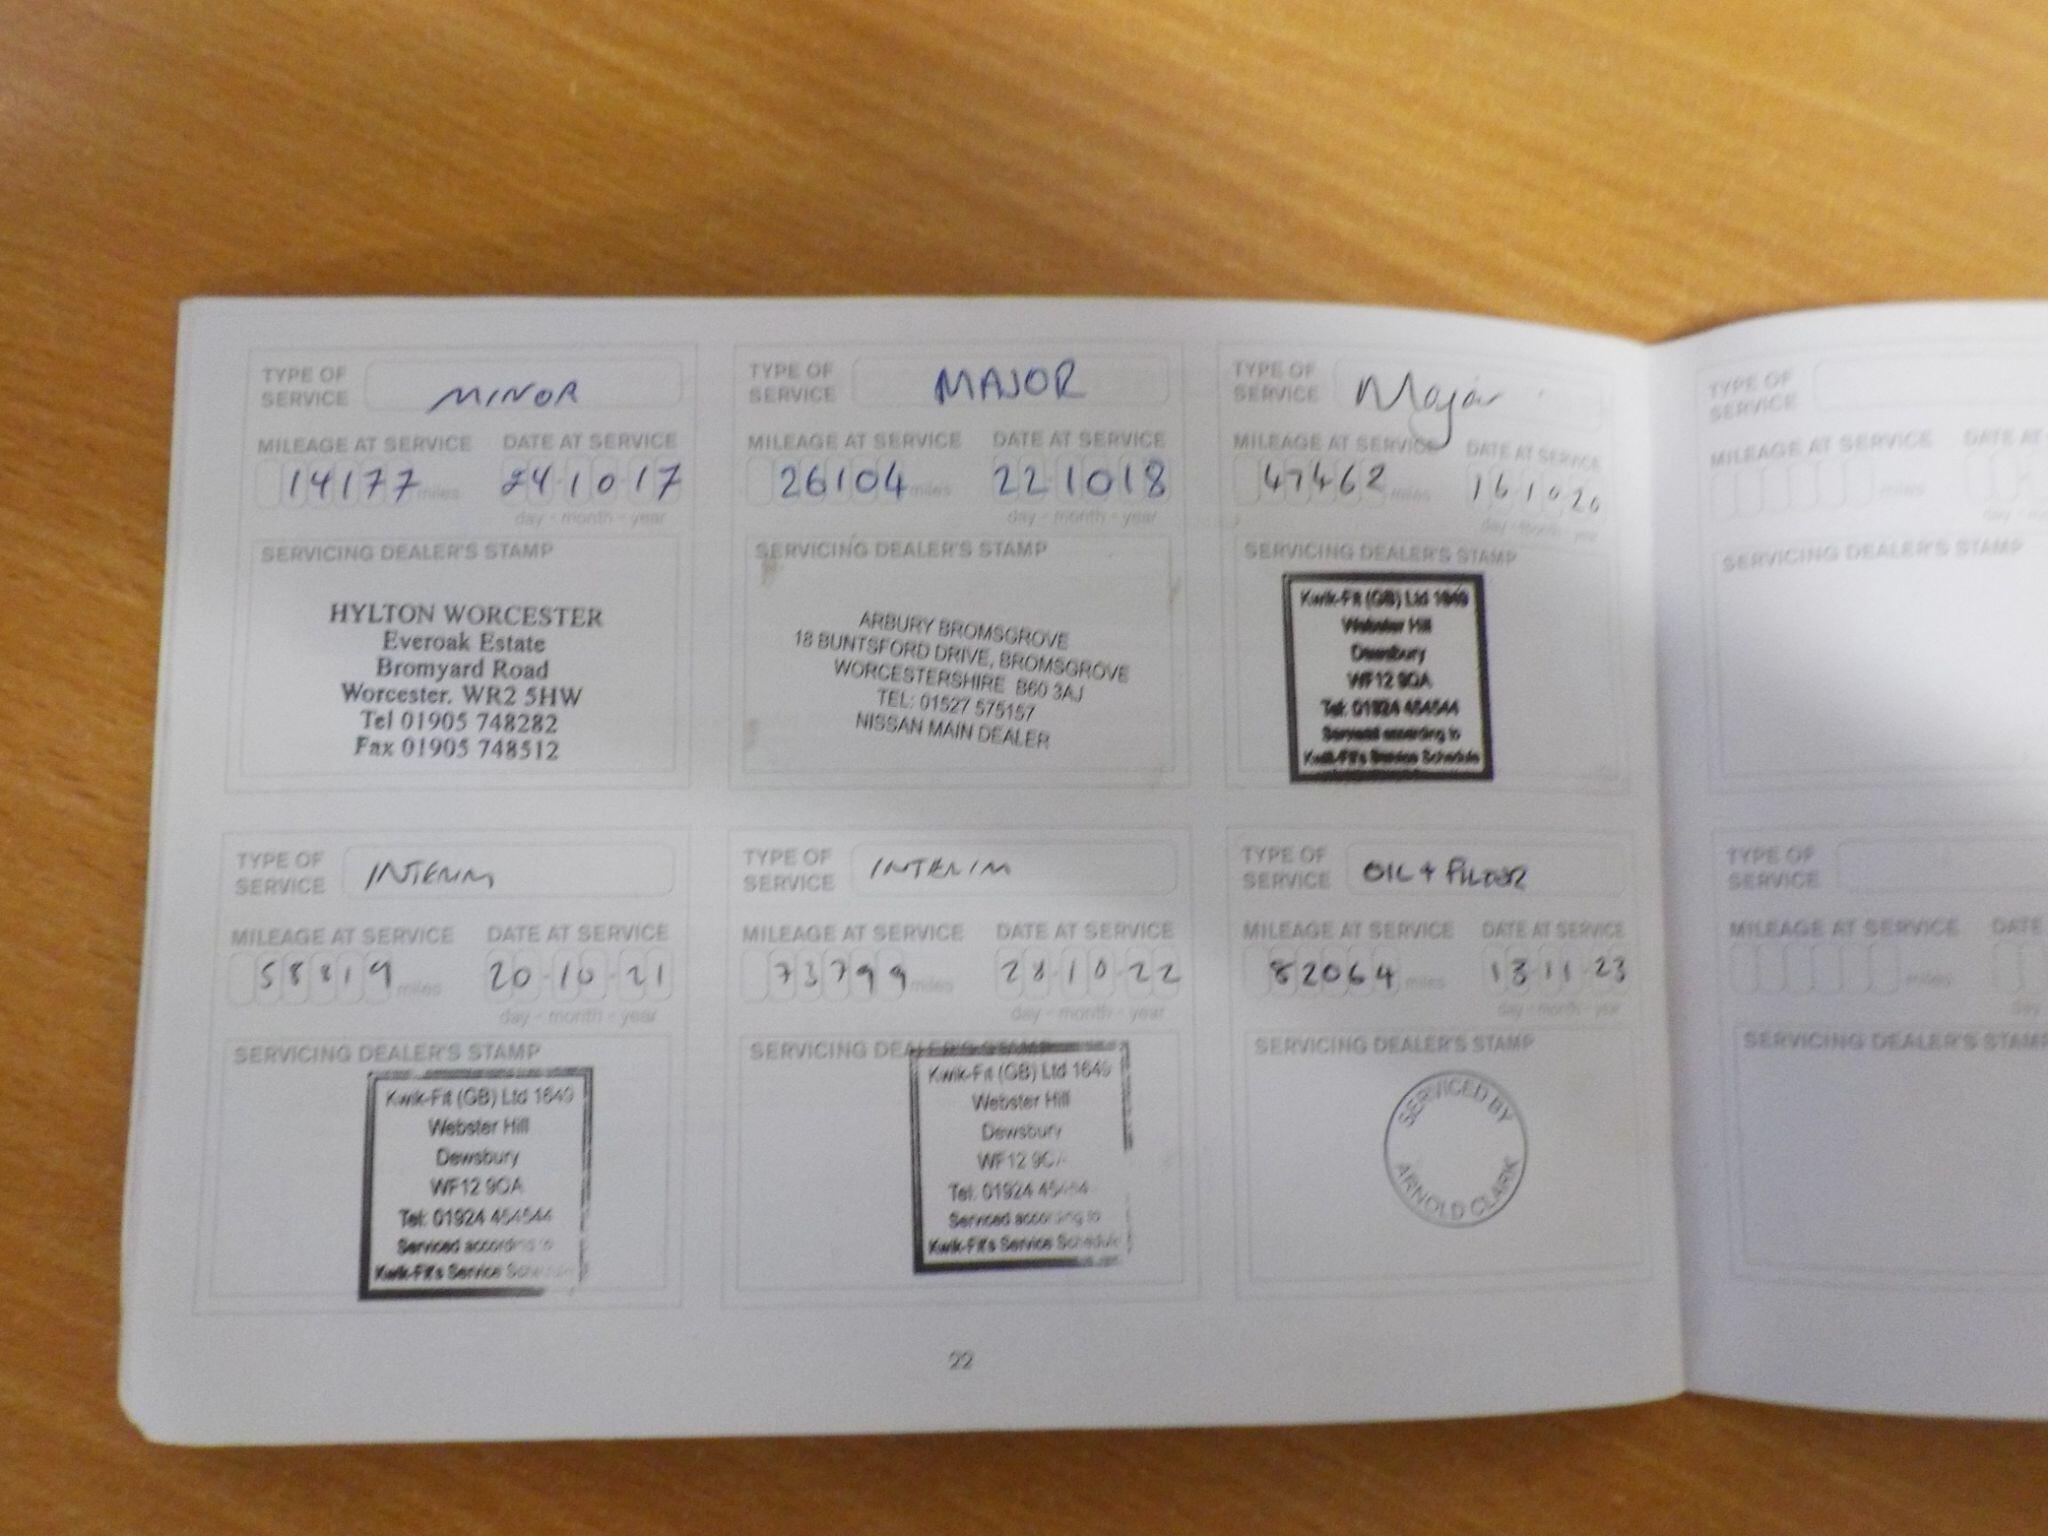 TYPE OF SERVICE MINOR
MILEAGE AT SERVICE DATE AT SERVICE
14177 miles 24 10 17
day - month - year
SERVICING DEALER'S STAMP
HYLTON WORCESTER
Everoak Estate
Bromyard Road
Worcester. WR2 5HW
Tel 01905 748282
Fax 01905 748512
TYPE OF SERVICE MAJOR
MILEAGE AT SERVICE DATE AT SERVICE
26104 miles 22 10 18
day - month - year
SERVICING DEALER'S STAMP
ARBURY BROMSGROVE
18 BUNTSFORD DRIVE, BROMSGROVE
WORCESTERSHIRE B60 3AJ
TEL: 01527 575157
NISSAN MAIN DEALER
TYPE OF SERVICE Major
MILEAGE AT SERVICE DATE AT SERVICE
47462 miles 16 10 20
day - month - year
SERVICING DEALER'S STAMP
Kwik-Fit (GB) Ltd 1649
Webster Hill
Dewsbury
WF12 9QA
Tel: 01924 454544
Serviced according to
Kwik-Fit's Service Schedule
TYPE OF SERVICE INTERIM
MILEAGE AT SERVICE DATE AT SERVICE
58819 miles 20-10-21
day - month - year
SERVICING DEALER'S STAMP
Kwik-Fit (GB) Ltd 1649
Webster Hill
Dewsbury
WF12 9QA
Tel: 01924 454544
Serviced according to
Kwik-Fit's Service Schedule
TYPE OF SERVICE INTERIM
MILEAGE AT SERVICE DATE AT SERVICE
73799 miles 28-10-22
day - month - year
SERVICING DEALER'S STAMP
Kwik-Fit (GB) Ltd 1649
Webster Hill
Dewsbury
WF12
Tel: 01924
Serviced according to
Kwik-Fit's Service Schedule
TYPE OF SERVICE OIL + FILTER
MILEAGE AT SERVICE DATE AT SERVICE
82064 miles 13 11 23
day - month - year
SERVICING DEALER'S STAMP
SERVICED BY
ARNOLD CLARK
22
TYPE OF SERVICE
MILEAGE AT SERVICE DATE AT
miles
SERVICING DEALER'S STAMP
TYPE OF SERVICE
MILEAGE AT SERVICE DATE
miles day
SERVICING DEALER'S STAMP